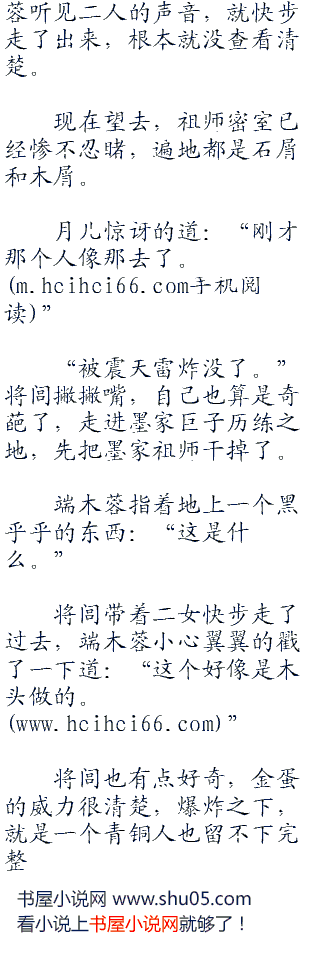 蓉听见二人的声音，就快步
走了出来，根本就没查看清
楚。
现在望去，祖师密室已
经惨不忍睹，遍地都是石屑
和木屑。
月儿惊讶的道：“刚才
那个人像那去了。
(m.hcihci66.com手机阅
读)”
“被震天雷炸没了。”
将闾撇撇嘴，自己也算是奇
葩了，走进墨家巨子历练之
地，先把墨家祖师干掉了。
端木蓉指着地上一个黑
乎乎的东西：“这是什
么。”
将闾带着二女快步走了
过去，端木蓉小心翼翼的戳
了一下道：“这个好像是木
头做的。
(www.hcihci66.com)”
将闾也有点好奇，金蛋
的威力很清楚，爆炸之下，
就是一个青铜人也留不下完
整
书屋小说网 www.shu05.com
看小说上书屋小说网就够了！